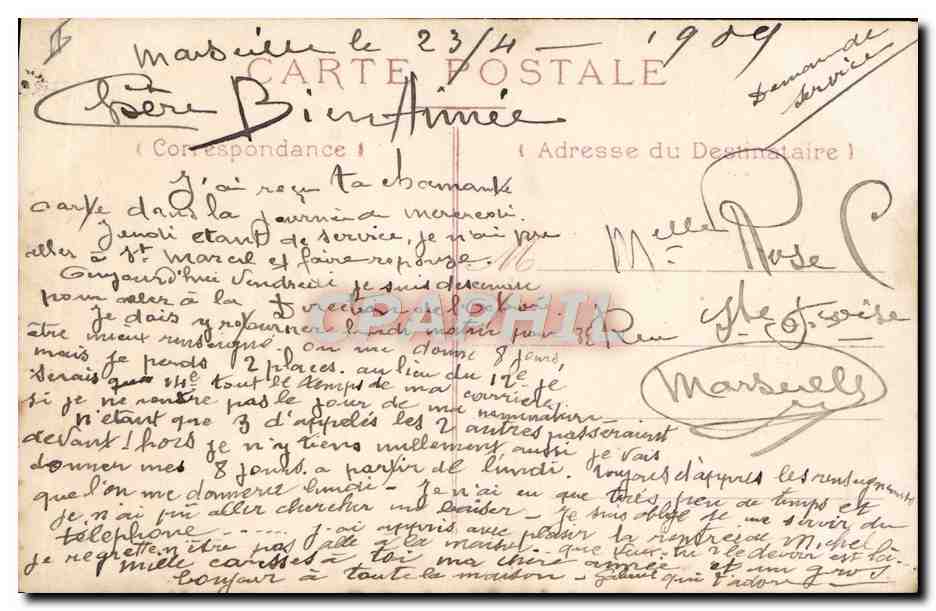 Marseille le 23/4 - 1909
CARTE POSTALE
Demande de
service
Chère Bien Aimée
(Correspondance)
(Adresse du Destinataire)
J'ai reçu ta charmante
carte dans la journée de mercredi.
Jeudi étant de service, je n'ai pu
aller à St Marcel et faire réponse.
Aujourd'hui Vendredi je suis descendu
pour aller à la Direction de l'octroi
je dois y retourner lundi matin pour
être mieux renseigné. On me donne 8 jours
mais je perds 2 places. au lieu du 12e je
serais que 14e tout le temps de ma carrière
si je ne rentre pas le jour de ma nomination
n'étant que 3 d'appelés les 2 autres passeraient
devant! hors je n'y tiens nullement aussi je vais
donner mes 8 jours. a partir de lundi. toujours d'après les renseignements
que l'on me donnera lundi - Je n'ai eu que très peu de temps et
je n'ai pu aller chercher un baiser - Je suis obligé de me servir du
téléphone ..... J'ai appris avec plaisir la rentrée de Michel
je regrette n'être pas allé à la maison - que veux-tu? le devoir est là-
mille caresses à toi ma chère aimée et un gros
bonjour à toute la maison - Celui qui t'adore
Melle Rose C
32 Rue Ste Fçoise
Marseille
CPAPHIL